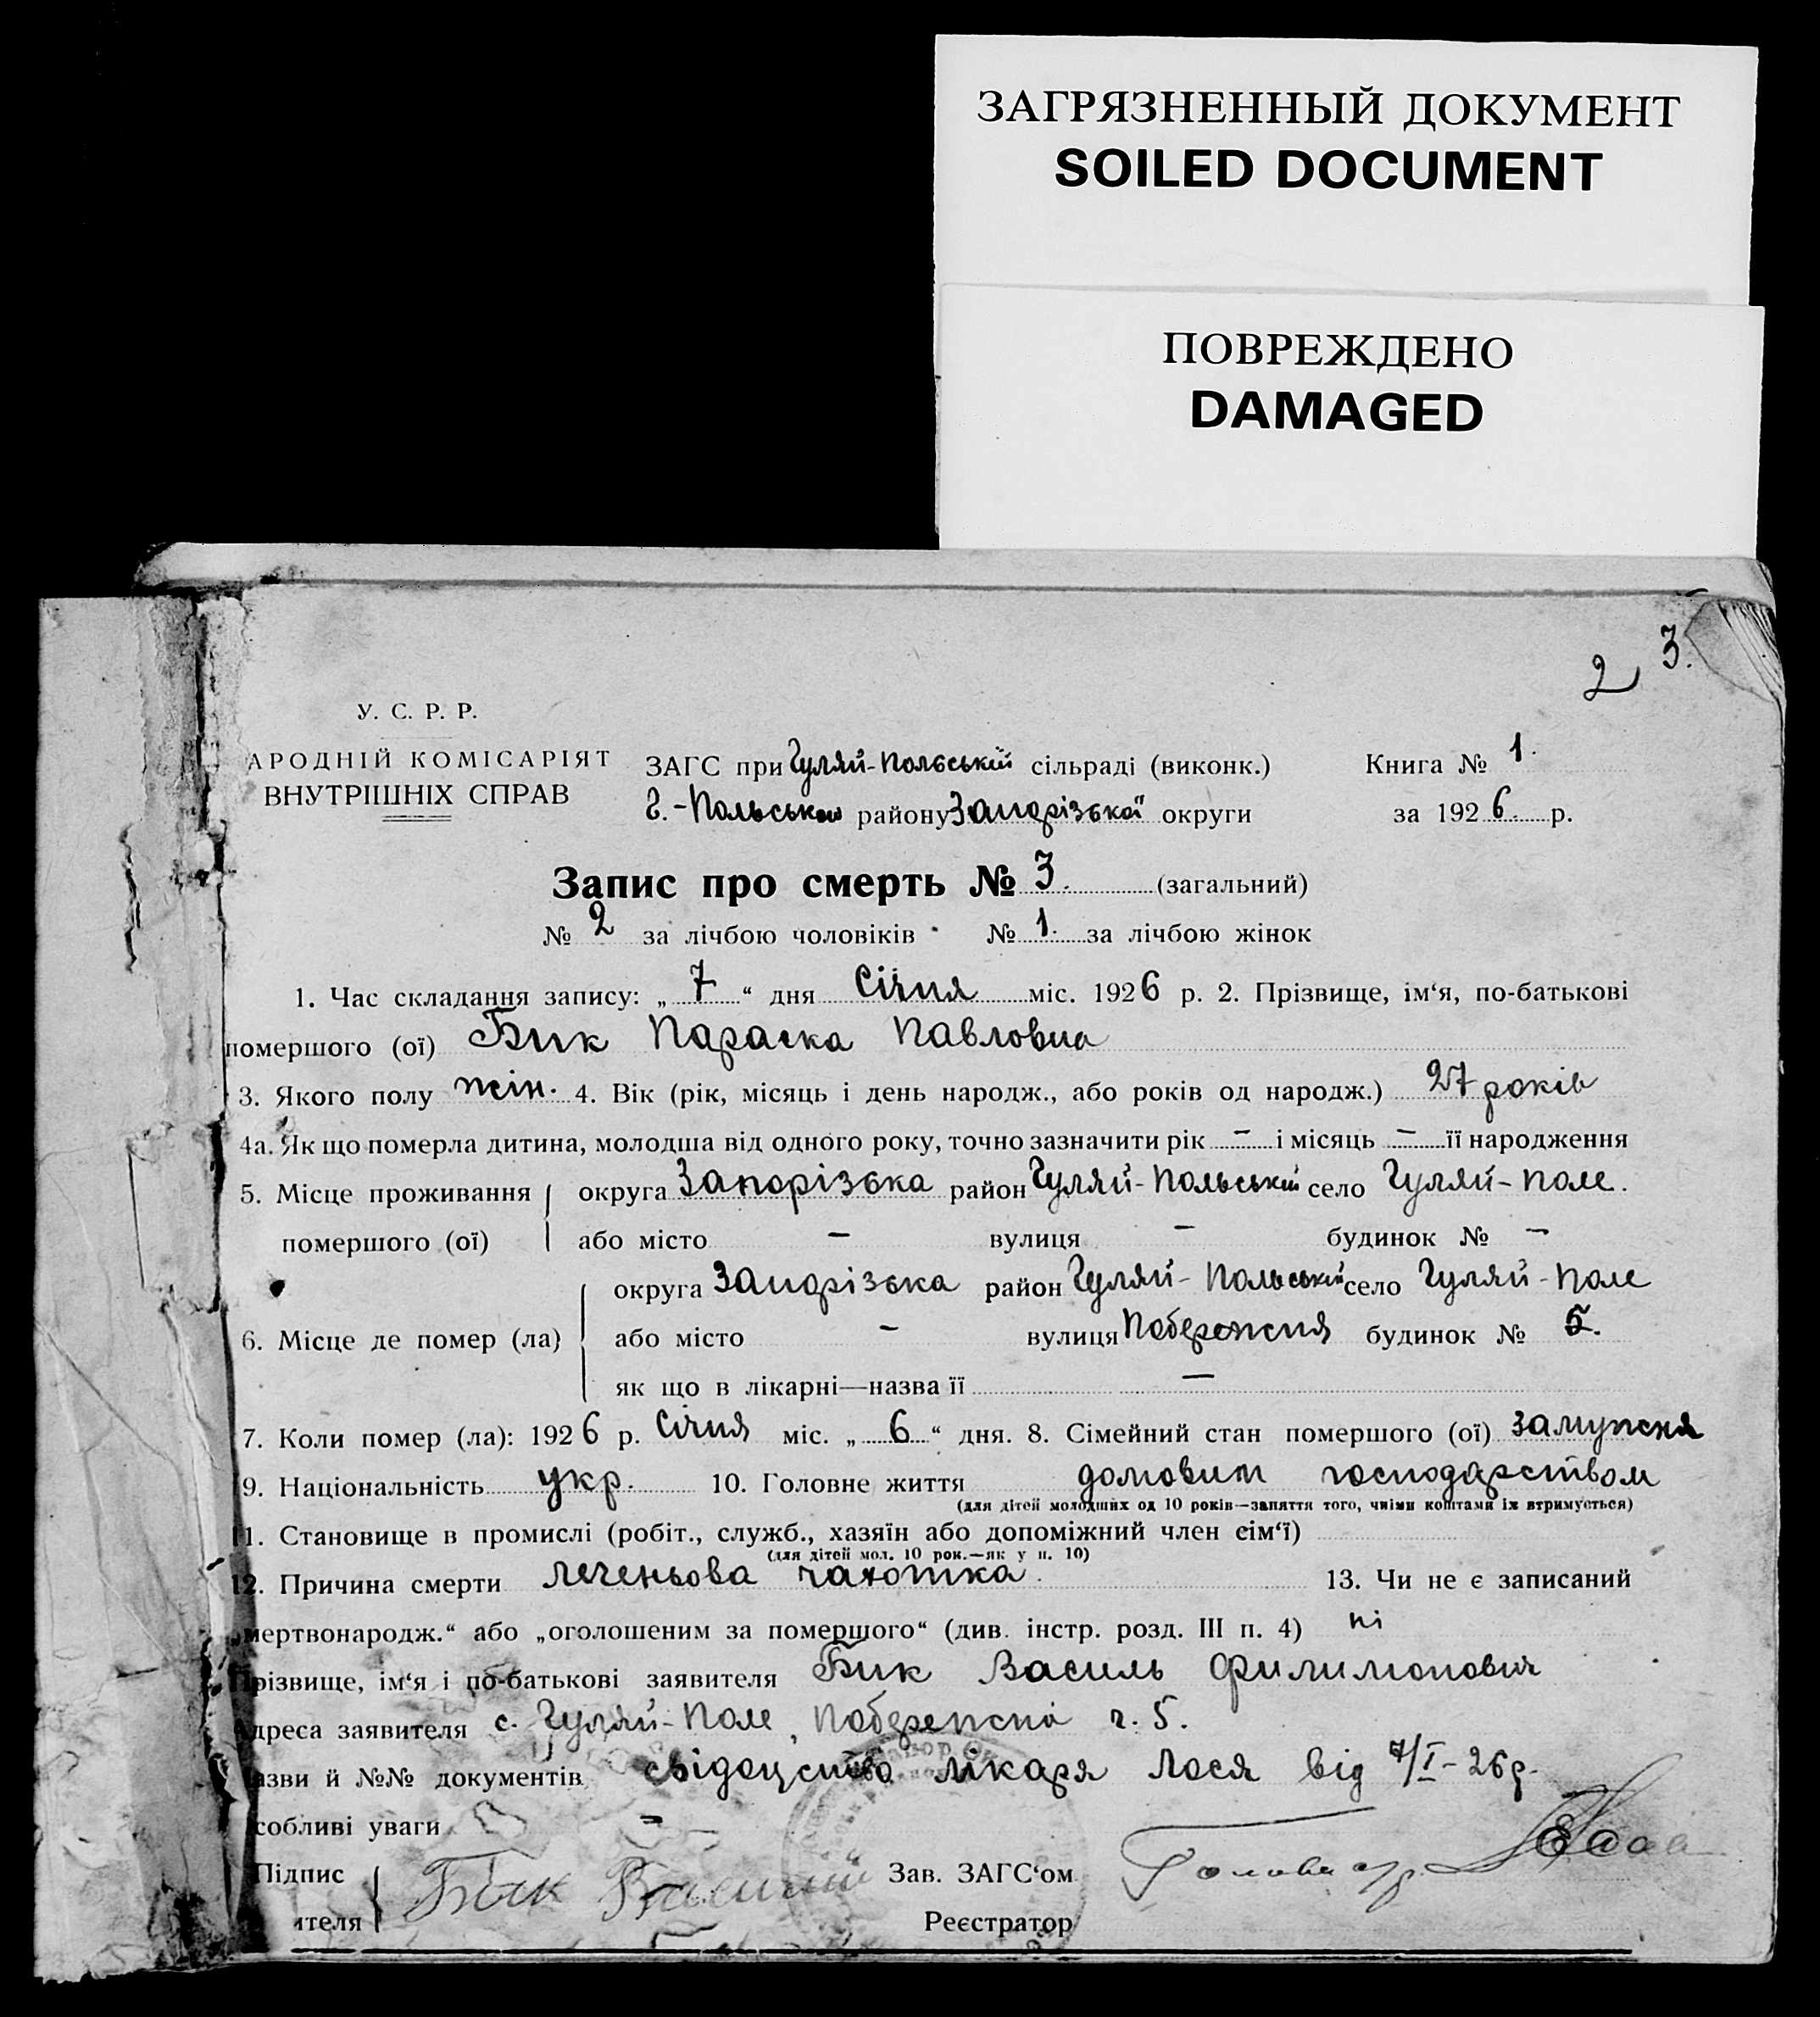 ЗАГРЯЗНЕННЫЙ ДОКУМЕНТ
SOILED DOCUMENT
ПОВРЕЖДЕНО
DAMAGED
2 3.
У. С. Р. Р.
АРОДНІЙ КОМІСАРІЯТ
ВНУТРІШНІХ СПРАВ
ЗАГС при Гуляй-Польській сільраді (виконк.)
Г.-Польського району Запорізької округи
Книга № 1.
за 1926. р.
Запис про смерть № 3. (загальний)
№ 2 за лічбою чоловіків № 1. за лічбою жінок
1. Час складання запису: „ 7 “ дня Січня міс. 1926 р. 2. Прізвище, ім‘я, по-батькові
помершого (ої) Бик Параска Павловна
3. Якого полу жін. 4. Вік (рік, місяць і день народж., або років од народж.) 27 років
4а. Як що померла дитина, молодша від одного року, точно зазначити рік – і місяць – її народження
5. Місце проживання помершого (ої) округа Запорізька район Гуляй-Польський село Гуляй-Поле.
або місто – вулиця – будинок № –
6. Місце де помер (ла) округа Запорізька район Гуляй-Польський село Гуляй-Поле
або місто – вулиця Побережня будинок № 5.
як що в лікарні—назва її –
7. Коли помер (ла): 1926 р. Січня міс. „ 6 “ дня. 8. Сімейний стан помершого (ої) замужня
9. Національність укр. 10. Головне життя домовим господарством
(для дітей молодших од 10 років—заняття того, чиїми коштами їх втримується)
11. Становище в промислі (робіт., служб., хазяїн або допоміжний член сім‘ї)
(для дітей мол. 10 рок.—як у п. 10)
12. Причина смерти легеньова чахотка. 13. Чи не є записаний
„мертвонародж.“ або „оголошеним за помершого“ (див. інстр. розд. III п. 4) ні
Прізвище, ім‘я і по-батькові заявителя Бик Василь Филимонович
Адреса заявителя с. Гуляй-Поле, Побережна ч. 5.
азви й №№ документів свідоцство лікаря Лося від 7/I-26р.
собливі уваги –
Підпис
ителя
Бик Василий
Зав. ЗАГС‘ом Голова
Реєстратор